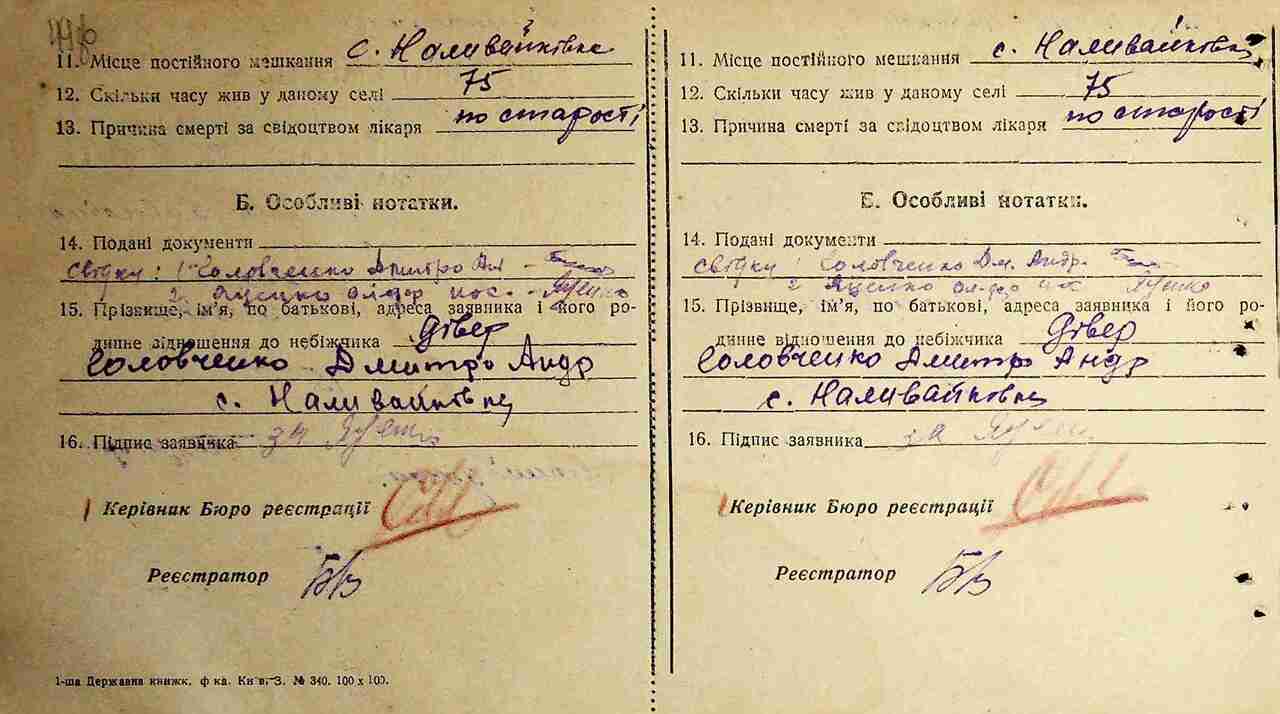 11. Місце постійного мешкання с. Наливайківка
12. Скільки часу жив у даному селі 75
13. Причина смерті за свідоцтвом лікаря по старості
Б. Особливі нотатки.
14. Подані документи
Свідки: 1 Соловченко Дмитро Ан
2 Яценко
15. Прізвище, ім'я, по батькові, адреса заявника і його ро-
динне відношення до небіжчика дівер
Соловченко Дмитро Андр
с. Наливайківка
16. Підпис заявника за
Керівник Бюро реєстрації
Реєстратор
1-ша Державна книжк. ф-ка. Київ.-З. № 340. 100 x 100.
11. Місце постійного мешкання с. Наливайківка
12. Скільки часу жив у даному селі 75
13. Причина смерті за свідоцтвом лікаря по старості
Б. Особливі нотатки.
14. Подані документи
Свідки: Соловченко Дм. Андр.
2 Яценко
15. Прізвище, ім'я, по батькові, адреса заявника і його ро-
динне відношення до небіжчика дівер
Соловченко Дмитро Андр
с. Наливайківка
16. Підпис заявника за
Керівник Бюро реєстрації
Реєстратор